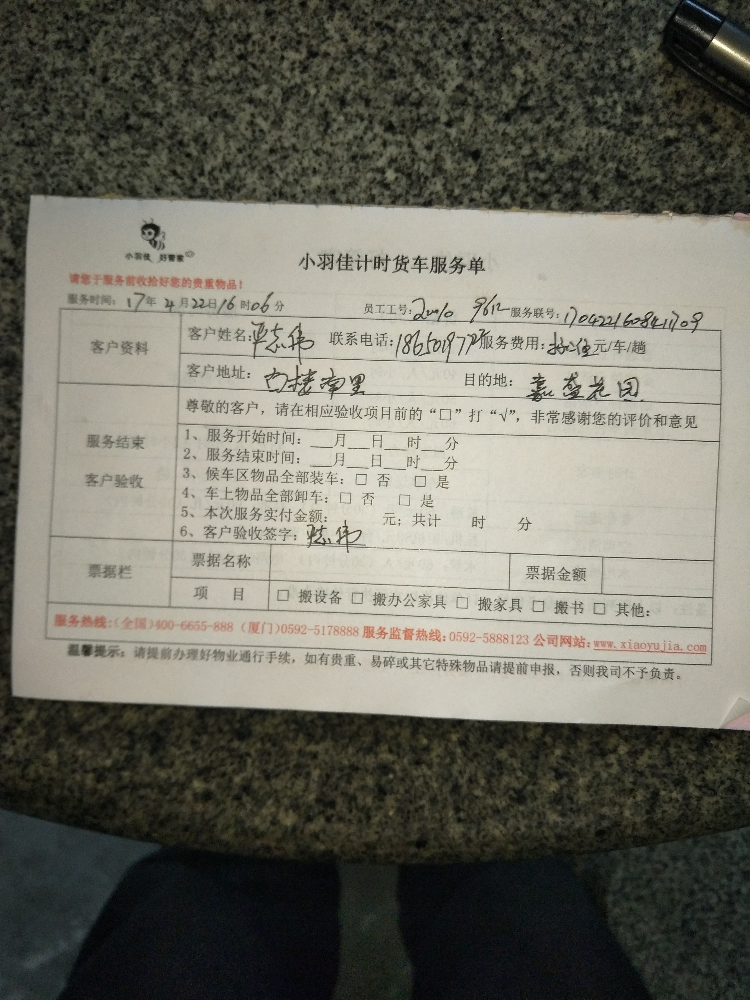 小羽佳 好管家
小羽佳计时货车服务单
请您于服务前收拾好您的贵重物品！
服务时间：17年4月22日16时06分 员工工号： 9612 服务联号：170422160841709
客户资料
客户姓名： 志伟 联系电话：186501977 服务费用： 元/车/趟
客户地址： 南里 目的地：嘉盛花园
服务结束
客户验收
尊敬的客户，请在相应验收项目前的“□”打“√”，非常感谢您的评价和意见
1、服务开始时间：___月___日___时___分
2、服务结束时间：___月___日___时___分
3、候车区物品全部装车：□ 否 □ 是
4、车上物品全部卸车：□ 否 □ 是
5、本次服务实付金额： 元；共计 时 分
6、客户验收签字： 志伟
票据栏
票据名称 票据金额
项 目 □ 搬设备 □ 搬办公家具 □ 搬家具 □ 搬书 □ 其他：
服务热线：(全国)400-6655-888 (厦门)0592-5178888 服务监督热线：0592-5888123 公司网站：www.xiaoyujia.com
温馨提示：请提前办理好物业通行手续，如有贵重、易碎或其它特殊物品请提前申报，否则我司不予负责。